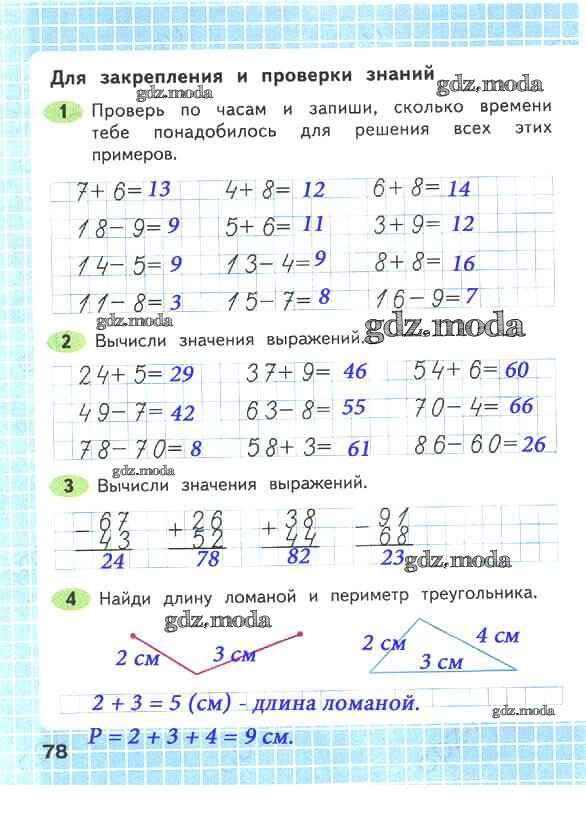 Для закрепления и проверки знаний
gdz.moda
gdz.moda
1 Проверь по часам и запиши, сколько времени
тебе понадобилось для решения всех этих
примеров.
7+ 6= 13 4+ 8= 12 6+ 8= 14
18- 9= 9 5+ 6= 11 3+ 9= 12
14- 5= 9 13- 4= 9 8+ 8= 16
11- 8= 3 15- 7= 8 16- 9= 7
gdz.moda
gdz.moda
2 Вычисли значения выражений.
24+ 5= 29 37+ 9= 46 54+ 6= 60
49- 7= 42 63- 8= 55 70- 4= 66
78- 70= 8 58+ 3= 61 86- 60= 26
gdz.moda
3 Вычисли значения выражений.
- 67 + 26 + 38 - 91
43 52 44 68
24 78 82 23
gdz.moda
4 Найди длину ломаной и периметр треугольника.
gdz.moda
2 см 3 см 2 см 4 см
3 см
2 + 3 = 5 (см) - длина ломаной.
gdz.moda
P = 2 + 3 + 4 = 9 см.
78